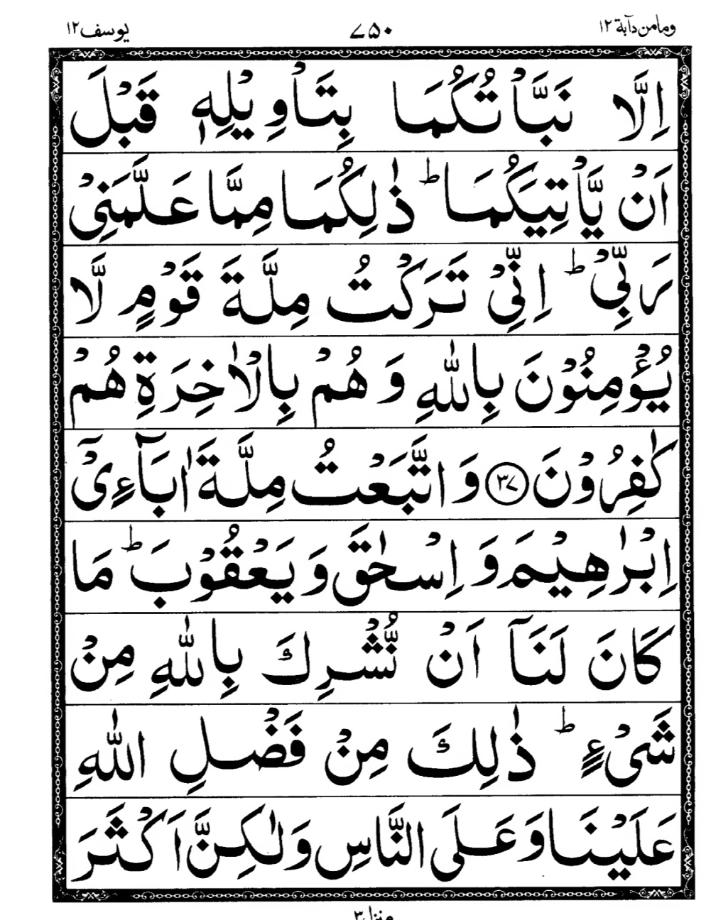 ومامن دآبة ١٢ ٧٥٠ يوسف ١٢
اِلَّا نَبَّاْتُكُمَا بِتَاْوِيْلِهٖ قَبْلَ
اَنْ يَّاْتِيَكُمَا ؕ ذٰلِكُمَا مِمَّا عَلَّمَنِيْ
رَبِّيْ ؕ اِنِّيْ تَرَكْتُ مِلَّةَ قَوْمٍ لَّا
يُؤْمِنُوْنَ بِاللّٰهِ وَ هُمْ بِالْاٰخِرَةِ هُمْ
كٰفِرُوْنَ ۝٣٧ وَ اتَّبَعْتُ مِلَّةَ اٰبَآءِيْۤ
اِبْرٰهِيْمَ وَ اِسْحٰقَ وَ يَعْقُوْبَ ؕ مَا
كَانَ لَنَاۤ اَنْ نُّشْرِكَ بِاللّٰهِ مِنْ
شَيْءٍ ؕ ذٰلِكَ مِنْ فَضْلِ اللّٰهِ
عَلَيْنَا وَ عَلَى النَّاسِ وَ لٰكِنَّ اَكْثَرَ
منزل ٣